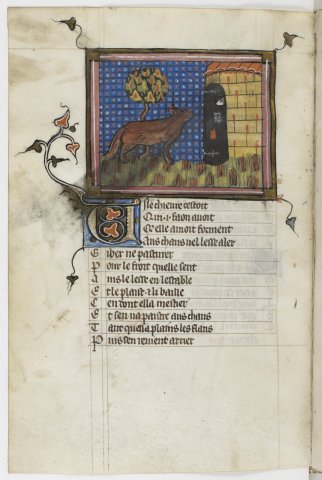 ne chieure estoit
Qui .i. faon auoit
Qelle amoit forment
Aus chans nel lesse aler
Giber ne pasturer
Pour le froit quelle sent
Ains le lesse en lestable
Et le plaist
en dont ella mestier
Et sen ua paistre aus chans
Tant quel la plains les flans
Puis sen reuient arrier